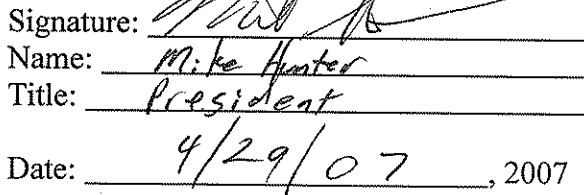 Signature:
Name: Mike Hunter
Title: President
Date: 4/29/07, 2007